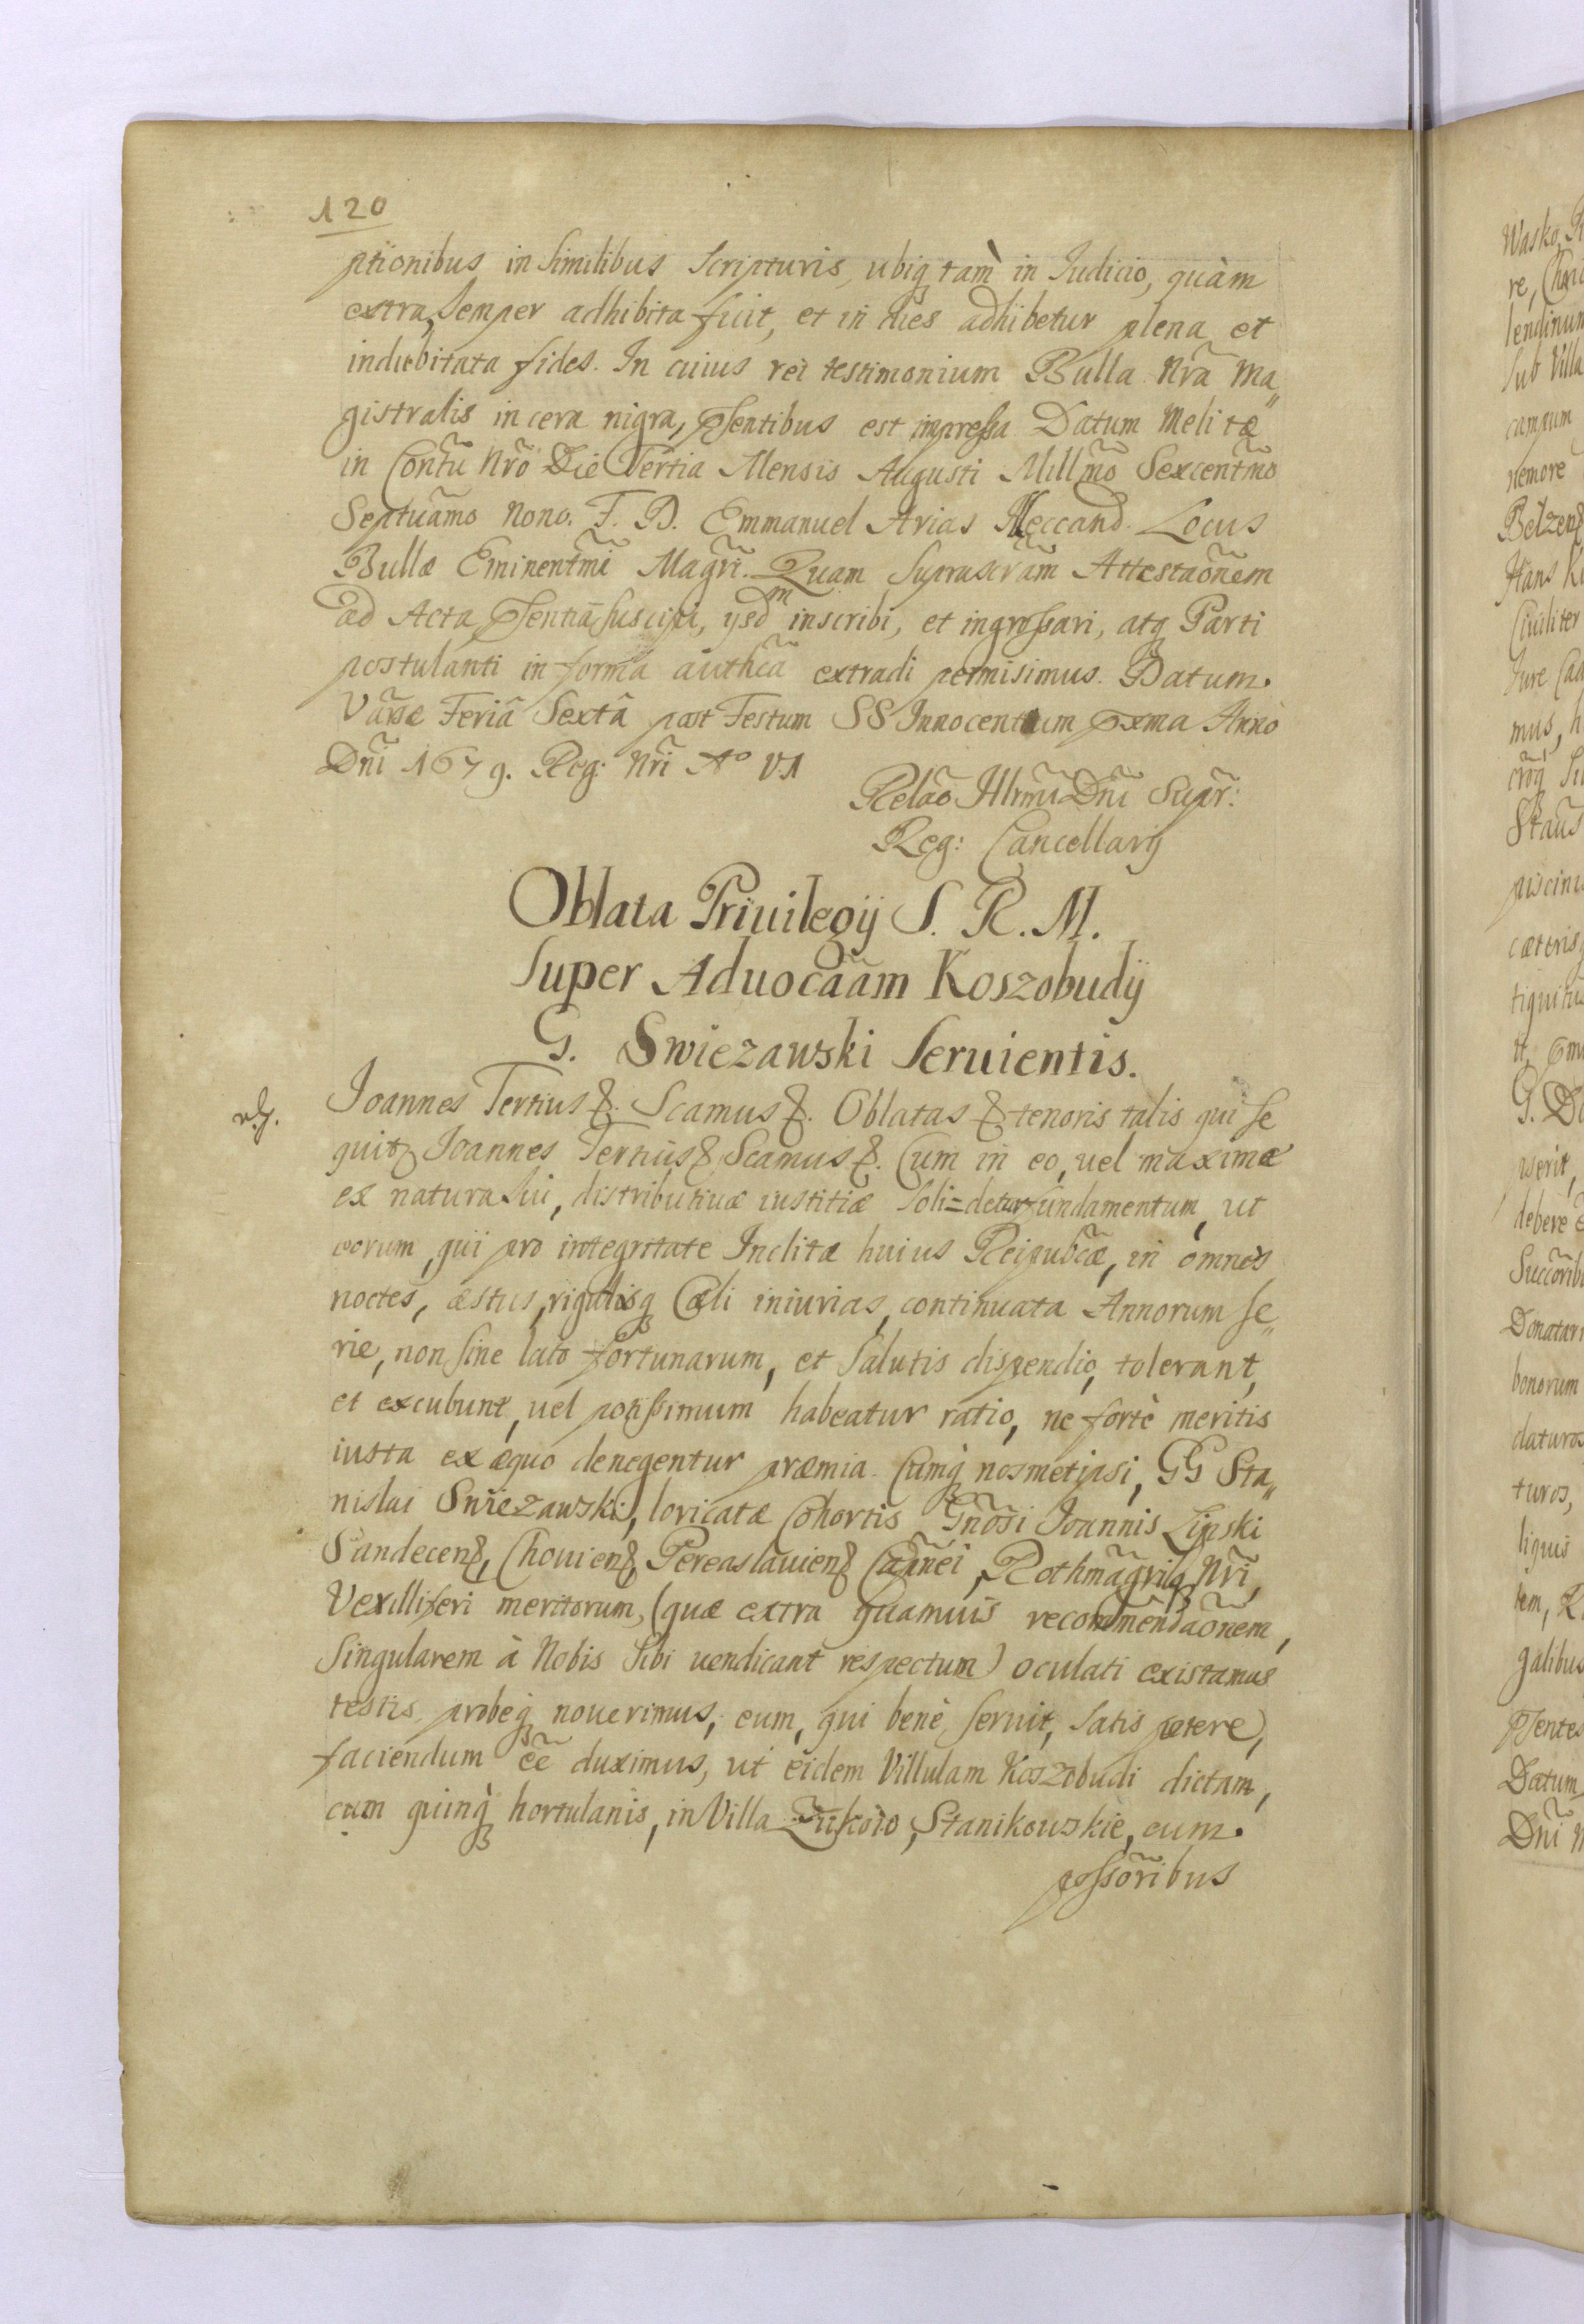 120
ptionibus in similibus Scripturis, ubiq tam̀ in Iudicio, quàm
extra, semper adhibita fuit, et in dies adhibetur plena et
indubitata fides. In cuius rei testimonium Bulla Nr̃a Ma„
gistralis in cera nigra, p̃sentibus est impressa Datum Melitæ
in Conṽtu Nr̃o Die Tertia Mensis Augusti Millm̃o Sexcentm̃o
Septuãmo Nono. F. D. Emmanuel Arias Locus
Bullæ Eminentm̃i Magr̃i. Quam suprascr̃am Attestaõnem
ad Acta p̃sentiã suscipi, ysdm inscribi, et ingrossari, atq Parti
postulanti in forma authc̃a extradi permisimus. Datum
Var̃æ Feriâ Sextâ post Festum SS Innocentium pxma Anno
Dñi 1679. Reg: Nr̃i Ao V.I
Relaõ Illrm̃i Dñi Supr̃:
Reg: Cancellarij
Oblata Priuilegij S. R. M.
super Aduocãam Koszobudÿ
G. Swiezawski seruientis.
Joannes Tertius &. Scamus &. Oblatas & tenoris talis qui se
quitr Joannes Tertius & Scamus &. Cum in eo, uel maximæ
ex natura sui, distributiuæ iustitiæ soli=detur fundamentum, ut
eorum, qui pro integritate Inclitæ huius Reipubc̃æ, in omnes
noctes, æstus, rigidisq Cæli iniurias, continuata Annorum se„
rie, non sine lato fortunarum, et salutis dispendio, tolerant,
et excubunt, uel potissimum habeatur ratio, ne fortè meritis
iusta ex æquo denegentur præmia. Cumq̀ nosmetipsi, GG Sta„
nislai Swiezawski, loricatæ Cohortis Gñosi Ioannis Lipski
Sandecen, Chouien, Pereaslauien Capñei, Rothmagr̃iq Nr̃i,
Vexilliferi meritorum, (quæ extra quamuis recommendaõnem,
singularem à Nobis sibi uendicant respectum) oculati existamus
testis, probeq nouerimus, eum, qui benè seruit, satis petere,
faciendum eẽ duximus, ut eidem Villulam Koszobudi dictam,
cum quinq̀ hortulanis, in Villa Zukowo, Stanikowskie, cum
possõribus